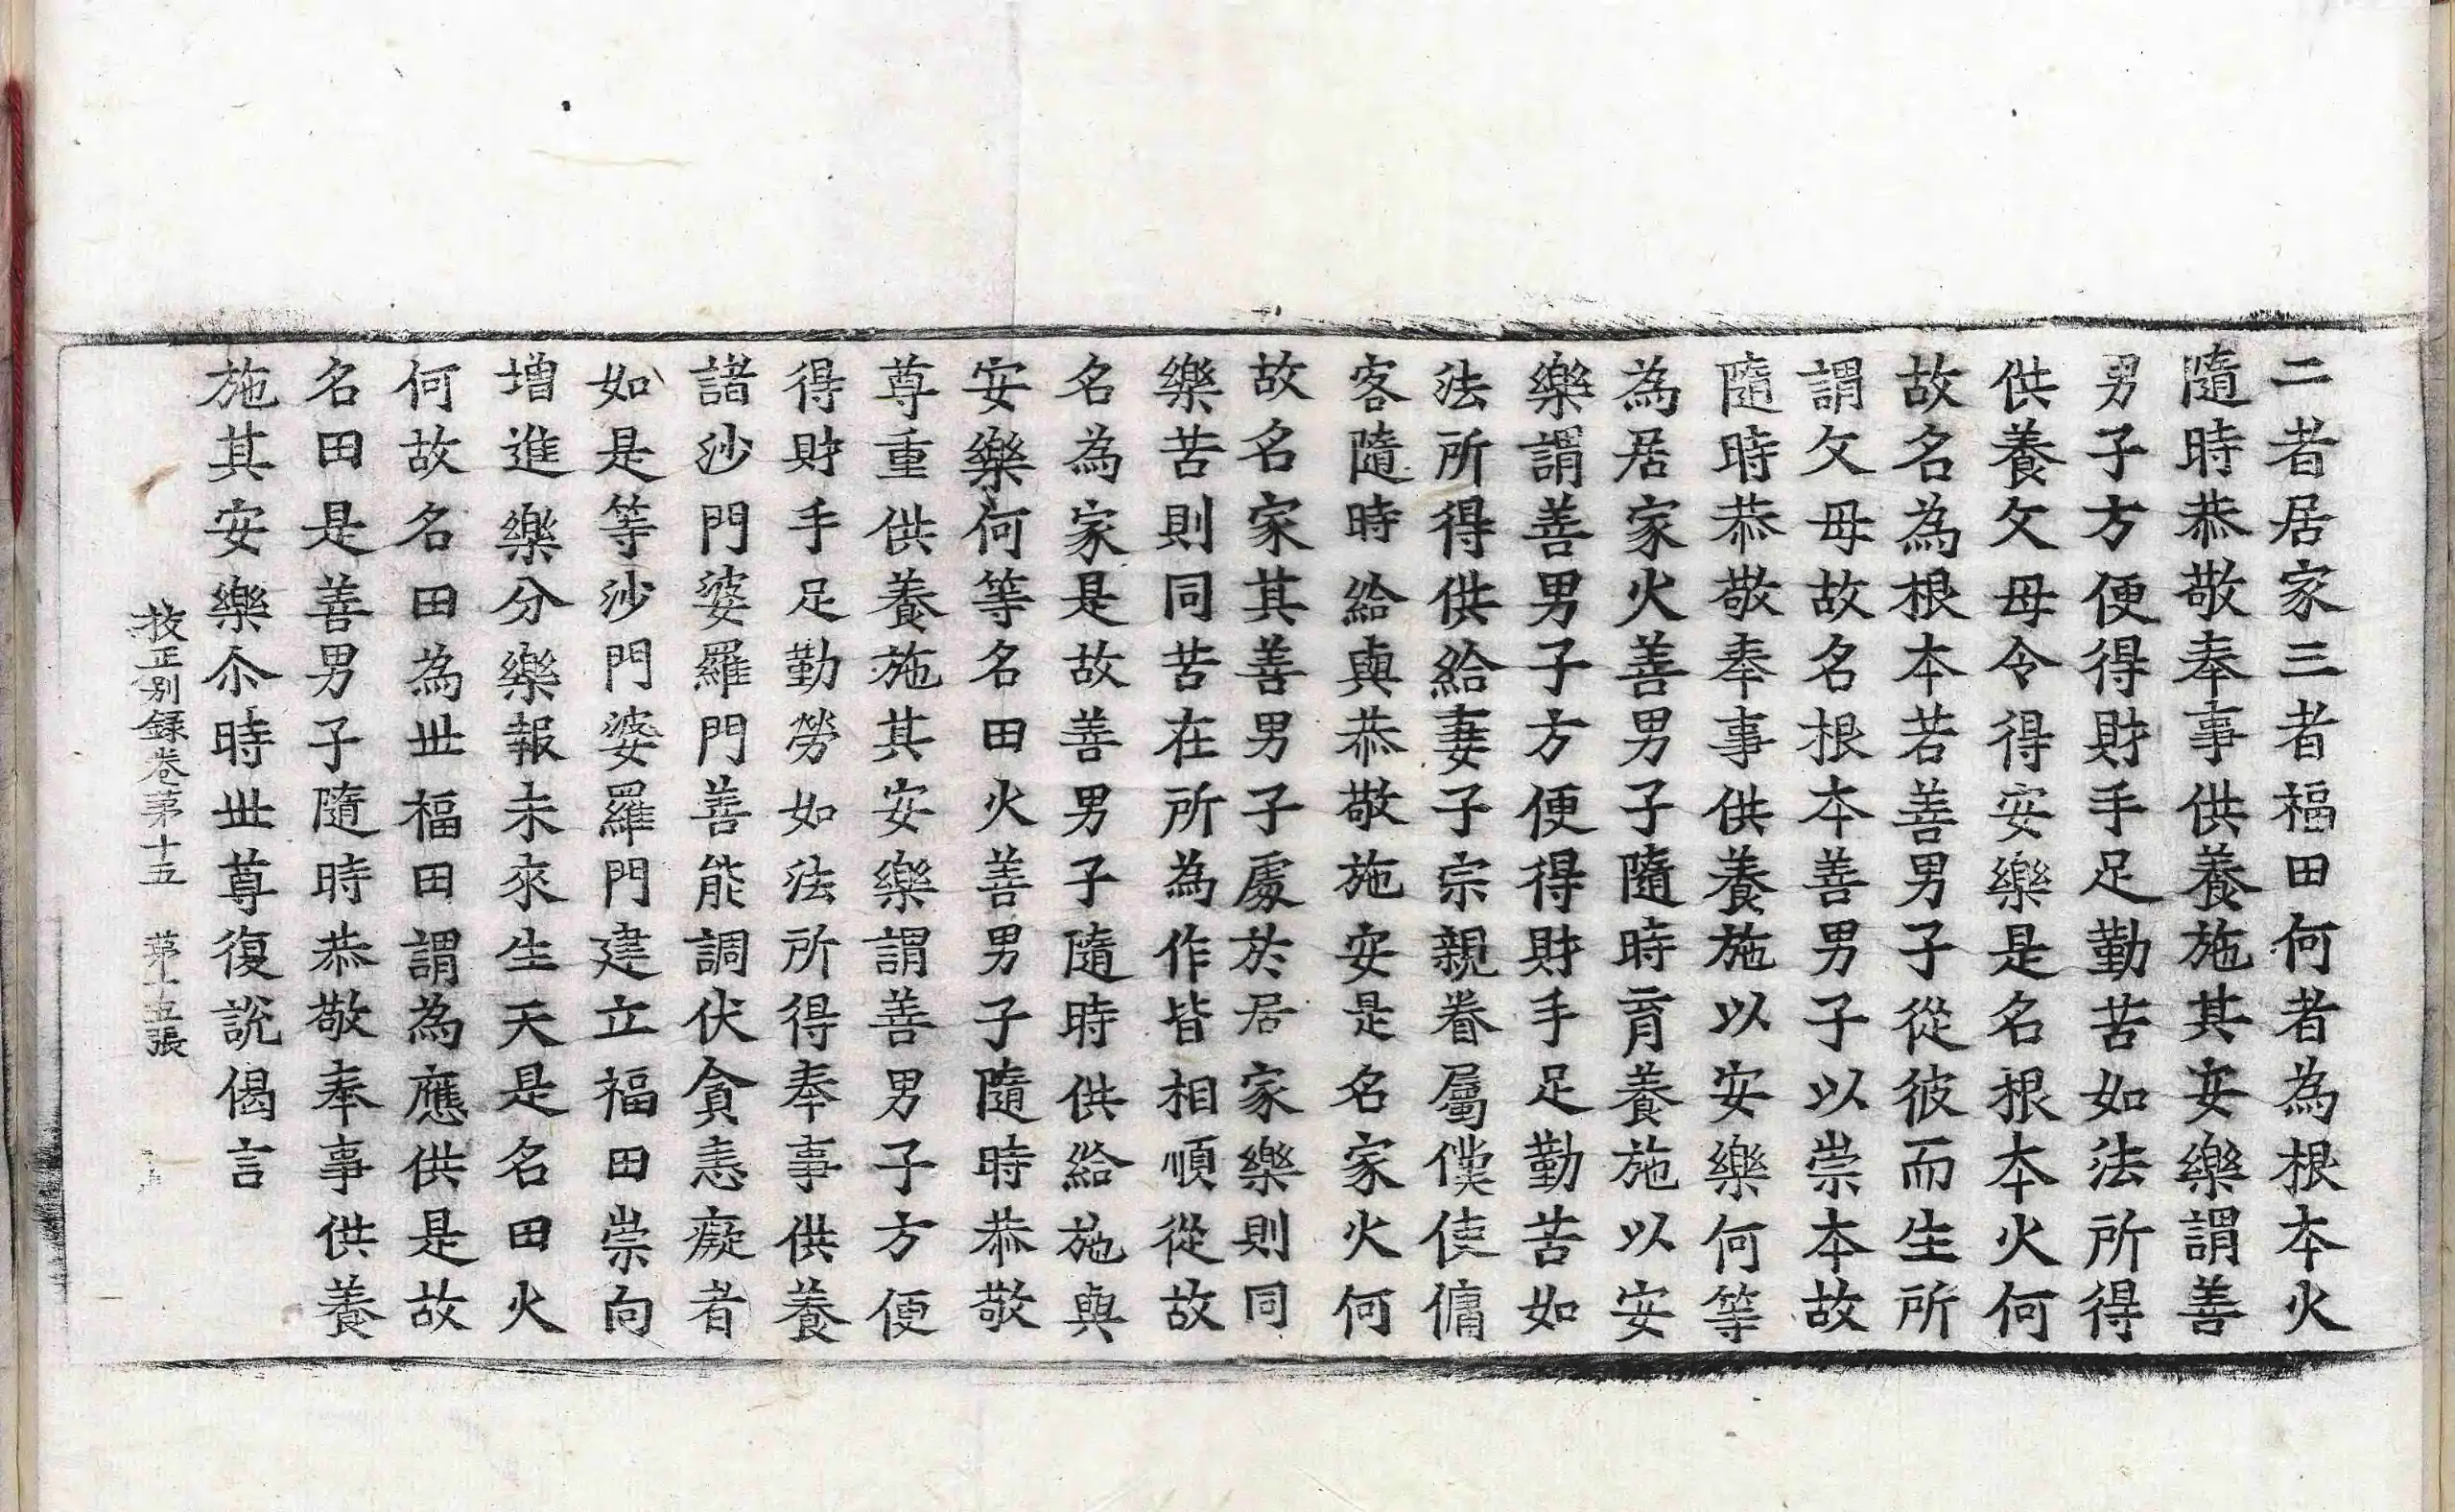 二者居家三者福田何者為根本火
隨時恭敬奉事供養施其安樂謂善
男子方便得財手足勤苦如法所得
供養父母令得安樂是名根本火何
故名為根本若善男子從彼而生所
謂父母故名根本善男子以崇本故
隨時恭敬奉事供養施以安樂何等
為居家火善男子隨時育養施以安
樂謂善男子方便得財手足勤苦如
法所得供給妻子宗親眷屬僕使傭
客隨時給與恭敬施安是名家火何
故名家其善男子處於居家樂則同
樂苦則同苦在所為作皆相順從故
名為家是故善男子隨時供給施與
安樂何等名田火善男子隨時恭敬
尊重供養施其安樂謂善男子方便
得財手足勤勞如法所得奉事供養
諸沙門婆羅門善能調伏貪恚癡者
如是等沙門婆羅門建立福田崇向
增進樂分樂報未來生天是名田火
何故名田為世福田謂為應供是故
名田是善男子隨時恭敬奉事供養
施其安樂尒時世尊復說偈言
挍正別錄卷第十五　第十五張